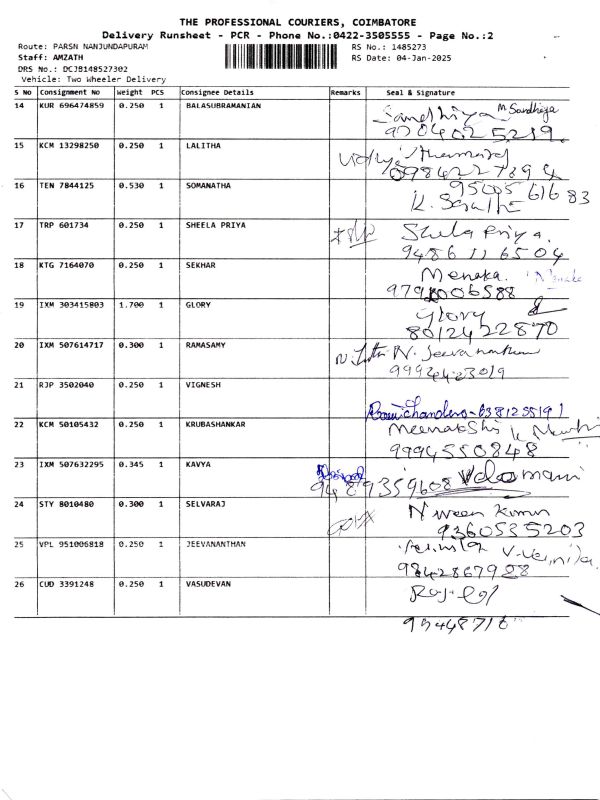 THE PROFESSIONAL COURIERS, COIMBATORE
Delivery Runsheet - PCR - Phone No.:0422-3505555 - Page No.:2
Route: PARSN NANJUNDAPURAM
RS No.: 1485273
Staff: AMZATH
RS Date: 04-Jan-2025
DRS No.: DCJB148527302
Vehicle: Two Wheeler Delivery
S No Consignment No Weight PCS Consignee Details Remarks Seal & Signature
14 KUR 696474859 0.250 1 BALASUBRAMANIAN Sandhiya M Sandhiya
9704025219
15 KCM 13298250 0.250 1 LALITHA
16 TEN 7844125 0.530 1 SOMANATHA 95005 61683
K.
17 TRP 601734 0.250 1 SHEELA PRIYA Sheela Priya.
9486116504
18 KTG 7164070 0.250 1 SEKHAR Menaka.
19 IXM 303415803 1.700 1 GLORY Glory
8012422870
20 IXM 507614717 0.300 1 RAMASAMY N. Jeevanantham
9994423019
21 RJP 3502040 0.250 1 VIGNESH
22 KCM 50105432 0.250 1 KRUBASHANKAR Meenakshi
9994550848
23 IXM 507632295 0.345 1 KAVYA
9489359608
24 STY 8010480 0.300 1 SELVARAJ Naveen Kumar
9360535203
25 VPL 951006818 0.250 1 JEEVANANTHAN
9842867928
26 CUD 3391248 0.250 1 VASUDEVAN